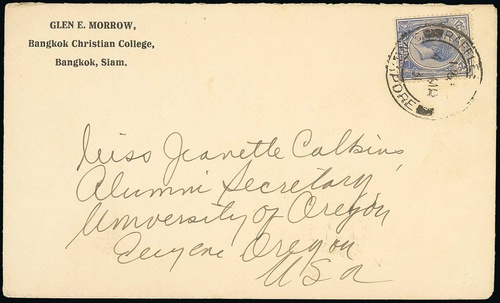 GLEN E. MORROW,
Bangkok Christian College,
Bangkok, Siam.
Miss Jeanette Calkins
Alumni Secretary,
University of Oregon,
Eugene Oregon
USA